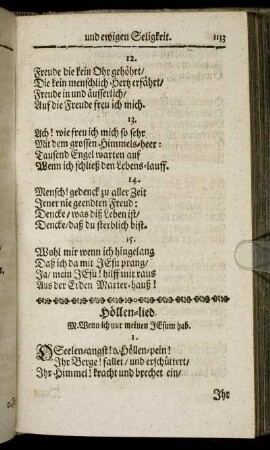 und ewigen Seligkeit. 1133
12.
Freude die kein Ohr gehöhrt/
Die kein menschlich Hertz erfährt/
Freude in und äusserlich/
Auf die Freude freu ich mich.
13.
Ach! wie freu ich mich so sehr
Mit dem grossen Himmels-heer:
Tausend Engel warten auf
Wenn ich schließ den Lebens-lauff.
14.
Mensch! gedenck zu aller Zeit
Jener nie geendten Freud:
Dencke/ was diß Leben ist/
Dencke/ daß du sterblich bist.
15.
Wohl mir wenn ich hingelang
Daß ich da mit JEsu prang/
Ja/ mein JEsu! hilff mir raus
Aus der Erden Marter-hauß!
Höllen-lied.
M. Wenn ich nur meinen JEsum hab.
1.
O Seelen-angst! o Höllen-pein!
Ihr Berge! fallet/ und erschüttert/
Ihr Himmel! kracht und brechet ein/
Ihr